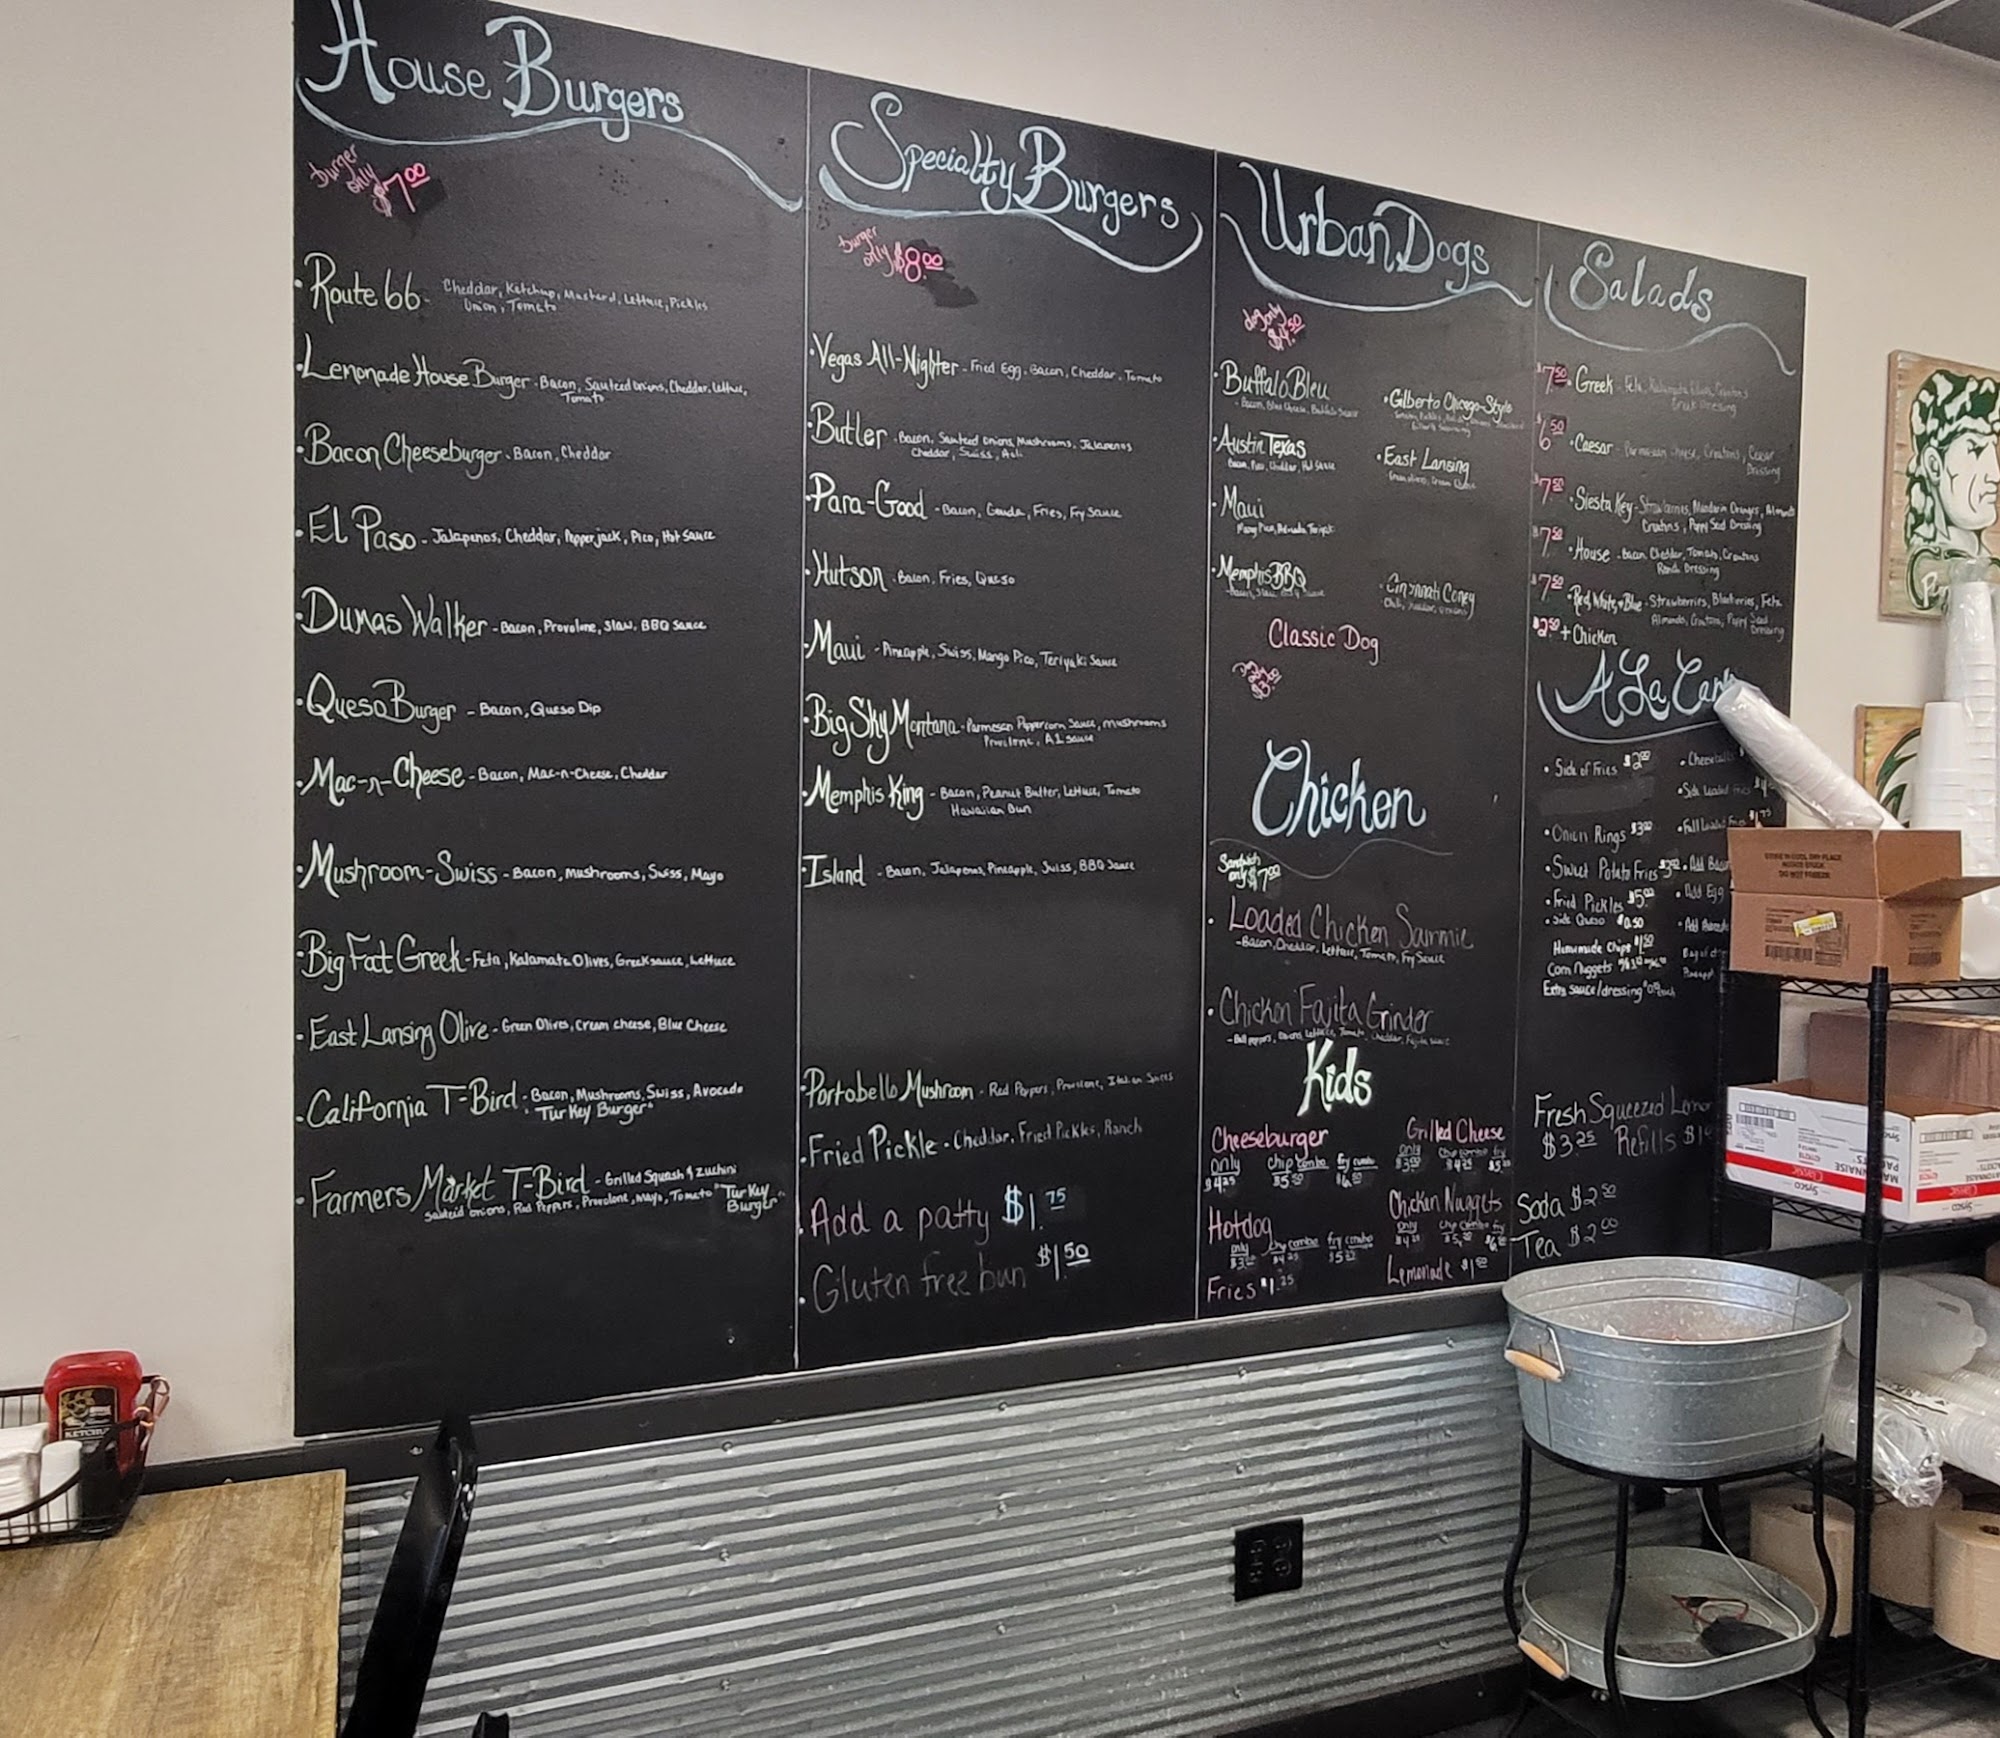 House Burgers
burger only $7.00
Route 66 - Cheddar, Ketchup, Mustard, Lettuce, Pickles
Onion, Tomato
Lemonade House Burger - Bacon, Sauteed onions, Cheddar, Lettuce,
Tomato
Bacon Cheeseburger - Bacon, Cheddar
El Paso - Jalapenos, Cheddar, Pepperjack, Pico, Hot Sauce
Dumas Walker - Bacon, Provolone, Slaw, BBQ Sauce
Queso Burger - Bacon, Queso Dip
Mac-n-Cheese - Bacon, Mac-n-Cheese, Cheddar
Mushroom-Swiss - Bacon, mushrooms, Swiss, Mayo
Big Fat Greek - Feta, Kalamata Olives, Greek sauce, Lettuce
East Lansing Olive - Green Olives, Cream cheese, Blue Cheese
California T-Bird - Bacon, Mushrooms, Swiss, Avocado
"Turkey Burger"
Farmers Market T-Bird - Grilled Squash & zuchini
Sauteed onions, Red Peppers, Provolone, Mayo, Tomato "Turkey
Burger"
Specialty Burgers
burger only $8.00
Vegas All-Nighter - Fried Egg, Bacon, Cheddar, Tomato
Butler - Bacon, Sauteed Onions, Mushrooms, Jalapenos
Cheddar, Swiss,
Para-Good - Bacon, Gouda, Fries, Fry Sauce
Hutson - Bacon, Fries, Queso
Maui - Pineapple, Swiss, Mango Pico, Teriyaki Sauce
Big Sky Montana - Parmesan Peppercorn Sauce, mushrooms
Provolone, A1 sauce
Memphis King - Bacon, Peanut Butter, Lettuce, Tomato
Hawaiian Bun
Island - Bacon, Jalapenos, Pineapple, Swiss, BBQ Sauce
Portobello Mushroom - Red Peppers, Provolone, Italian Spices
Fried Pickle - Cheddar, Fried Pickles, Ranch
Add a patty $1.75
Gluten free bun $1.50
Urban Dogs
dog only
$4.50
Buffalo Bleu
- Bacon, Blue Cheese, Buffalo Sauce
Austin Texas
Bacon, Pico, Cheddar, Hot Sauce
Maui
Mango Pico, Teriyaki
Memphis BBQ
- Bacon, Slaw, Sauce
Gilberto Chicago-Style
East Lansing
Green olives, Cream Cheese
Cincinnati Coney
Chili, Cheddar, onions
Classic Dog
Chicken
Sandwich
only $7.00
Loaded Chicken Sammie
- Bacon, Cheddar, Lettuce, Tomato, Fry Sauce
Chicken Fajita Grinder
- Bell peppers, Onions, Lettuce, Tomato, Cheddar, Fajita sauce
Kids
Cheeseburger
only chip combo fry combo
$4.25 $5.50 $6.50
Grilled Cheese
only chip combo fry
$3.00 $4.25
Hotdog
only chip combo fry combo
$4.25
Chicken Nuggets
only chip combo fry
Fries $1.25
Lemonade $1.50
Salads
$7.50 Greek - Feta, Kalamata Olives, Croutons
Greek Dressing
$6.50 Caesar - Parmesan Cheese, Croutons, Ceasar
Dressing
$7.50 Siesta Key - Strawberries, Mandarin Oranges, Almonds
Croutons, Poppy Seed Dressing
$7.50 House - Bacon, Cheddar, Tomato, Croutons
Ranch Dressing
$7.50 Red, White, + Blue - Strawberries, Blueberries, Feta
Almonds, Croutons, Poppy Seed
Dressing
$2.50 + Chicken
A La Cart
Side of Fries $2.00
Onion Rings $3.00
Sweet Potato Fries
Fried Pickles $5.00
Side Queso $0.50
Homemade Chips $1.50
Corn Nuggets
Extra sauce/dressing each
Side Loaded Fries
Full Loaded Fries
Add Bacon
Add Egg
Add
Fresh Squeezed
$3.25 Refills
Soda $2.50
Tea $2.00
KETCHUP
Sysco
Classic
Sysco
Classic